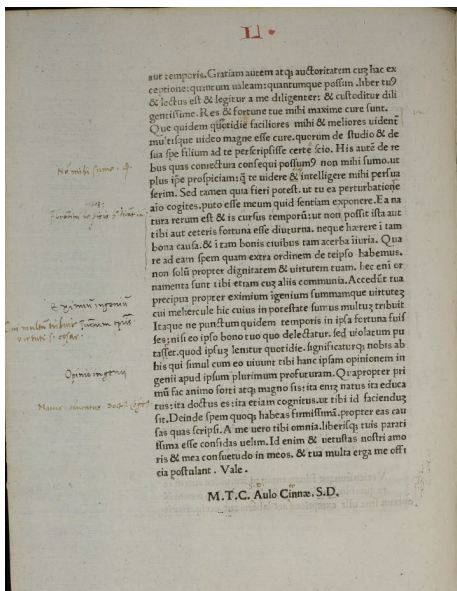 aut temporis. Gratiam autem atq; auctoritatem cuʒ hac ex
ceptione: quantum ualeam: quantumque possum. liber tuꝰ
& lectus est & legitur a me diligenter: & custoditur dili
gentissime. Res & fortune tue mihi maxime cure sunt.
Que quidem quottidie faciliores mihi & meliores uidenť
multisque uideo magne esse cure. quorum de studio & de
sua spe filium ad te perscripsisse certe scio. His autē de re
bus quas coniectura consequi possumꝰ non mihi sumo. ut
plus ipe prospiciam: q̄ te uidere & intelligere mihi persua
serim. Sed tamen quia fieri potest. ut tu ea perturbatione
aio cogites. puto esse meum quid sentiam exponere. Ea na
tura rerum est & is cursus temporū: ut non possit ista aut
tibi aut ceteris fortuna esse diuturna. neque hærere ī tam
bona causa. & ī tam bonis ciuibus tam acerba iiuria. Qua
re ad eam spem quam extra ordinem de teipso habemus.
non solū propter dignitatem & uirtutem tuam. hec enī or
namenta sunt tibi etiam cuʒ aliis communia. Accedūt tua
precipua propter eximium igenium summamque uirtuteʒ
cui mehercule hic cuius in potestate sumus multuʒ tribuit
Itaque ne punctum quidem temporis in ipsa fortuna fuis
ses: nisi eo ipso bono tuo quo delectatur. sed uiolatum pu
tasset. quod ipsuʒ lenitur quotidie. significaturq; nobis ab
his qui simul cum eo uiuunt tibi hanc ipsam opinionem in
genii apud ipsum plurimum profuturam. Quapropter pri
mū fac animo forti atq; magno sis: ita eniʒ natus ita educa
tus: ita doctus es: ita etiam cognitus. ut tibi id faciendūʒ
sit. Deinde spem quoq; habeas firmissimā. propter eas cau
sas quas scripsi. A me uero tibi omnia. liberisq; tuis parati
ssima esse confidas uelim. Id enim & uetustas nostri amo
ris & mea consuetudo in meos. & tua multa erga me offi
cia postulant. Vale.
M.T.C. Aulo Cinnæ. S.D.
Nō mihi sumo.
Opinio ingenij